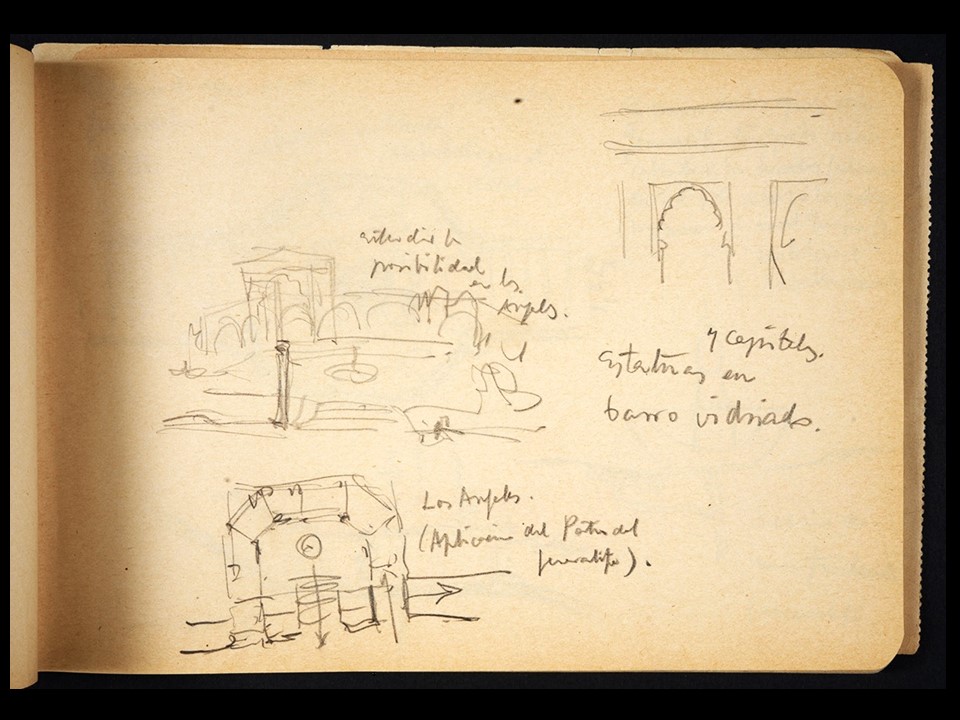 estudiar la
posibilidad
en los
Angeles.
y capiteles.
estatuas en
barro vidriado.
Los Angeles.
(Aplicación del Patio del
generalife).